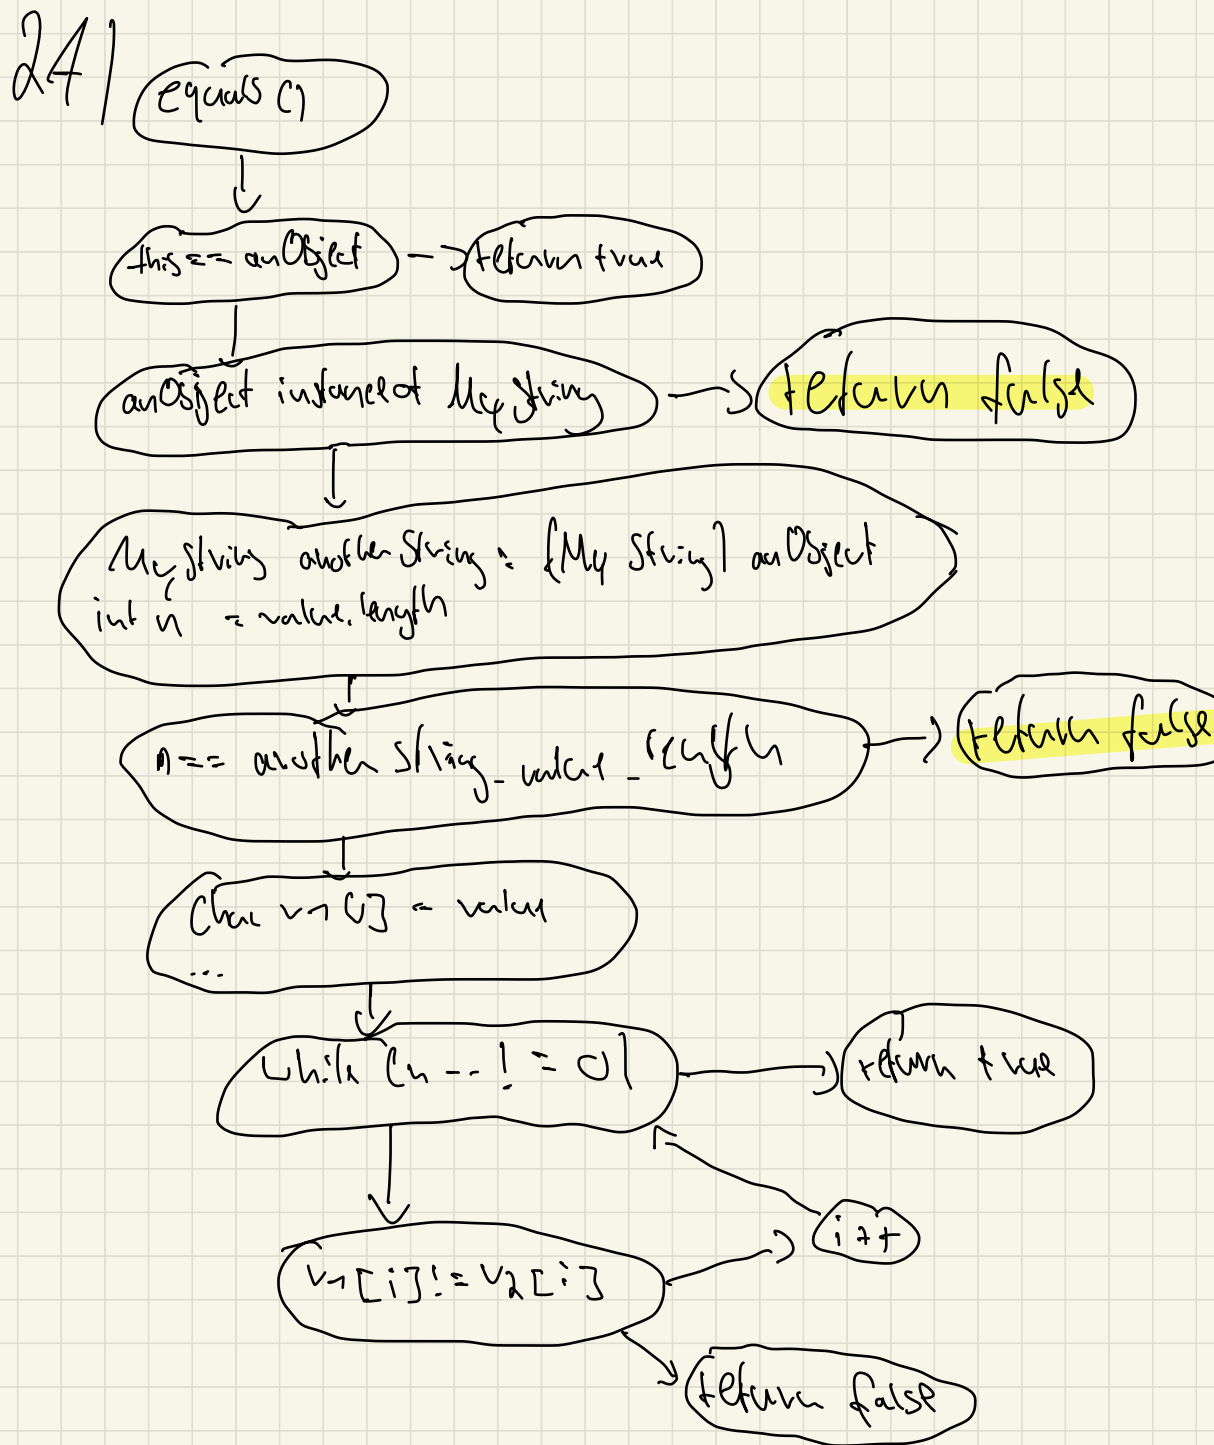 24)
equals ()
this == anObject
return true
anObject instanceof MyString
return false
MyString anotherString = (MyString) anObject
int n = value.length
n == anotherString_value_length
return false
Char v1 [] = value
...
while (n -- ! = 0)
return true
i++
v1[i]!=v2[i]
return false